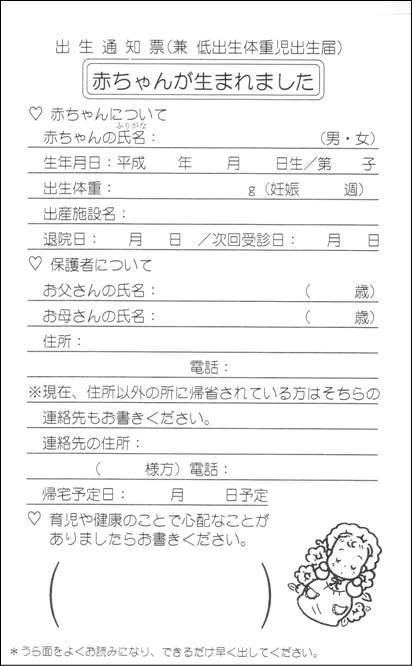 出生通知票(兼 低出生体重児出生届)
赤ちゃんが生まれました
♡ 赤ちゃんについて
ふりがな
赤ちゃんの氏名： (男・女)
生年月日：平成 年 月 日生／第 子
出生体重： g (妊娠 週)
出産施設名：
退院日： 月 日 ／次回受診日： 月 日
♡ 保護者について
お父さんの氏名： ( 歳)
お母さんの氏名： ( 歳)
住所：
電話：
※現在、住所以外の所に帰省されている方はそちらの
連絡先もお書きください。
連絡先の住所：
( 様方) 電話：
帰宅予定日： 月 日予定
♡ 育児や健康のことで心配なことが
ありましたらお書きください。
( )
＊うら面をよくお読みになり、できるだけ早く出してください。